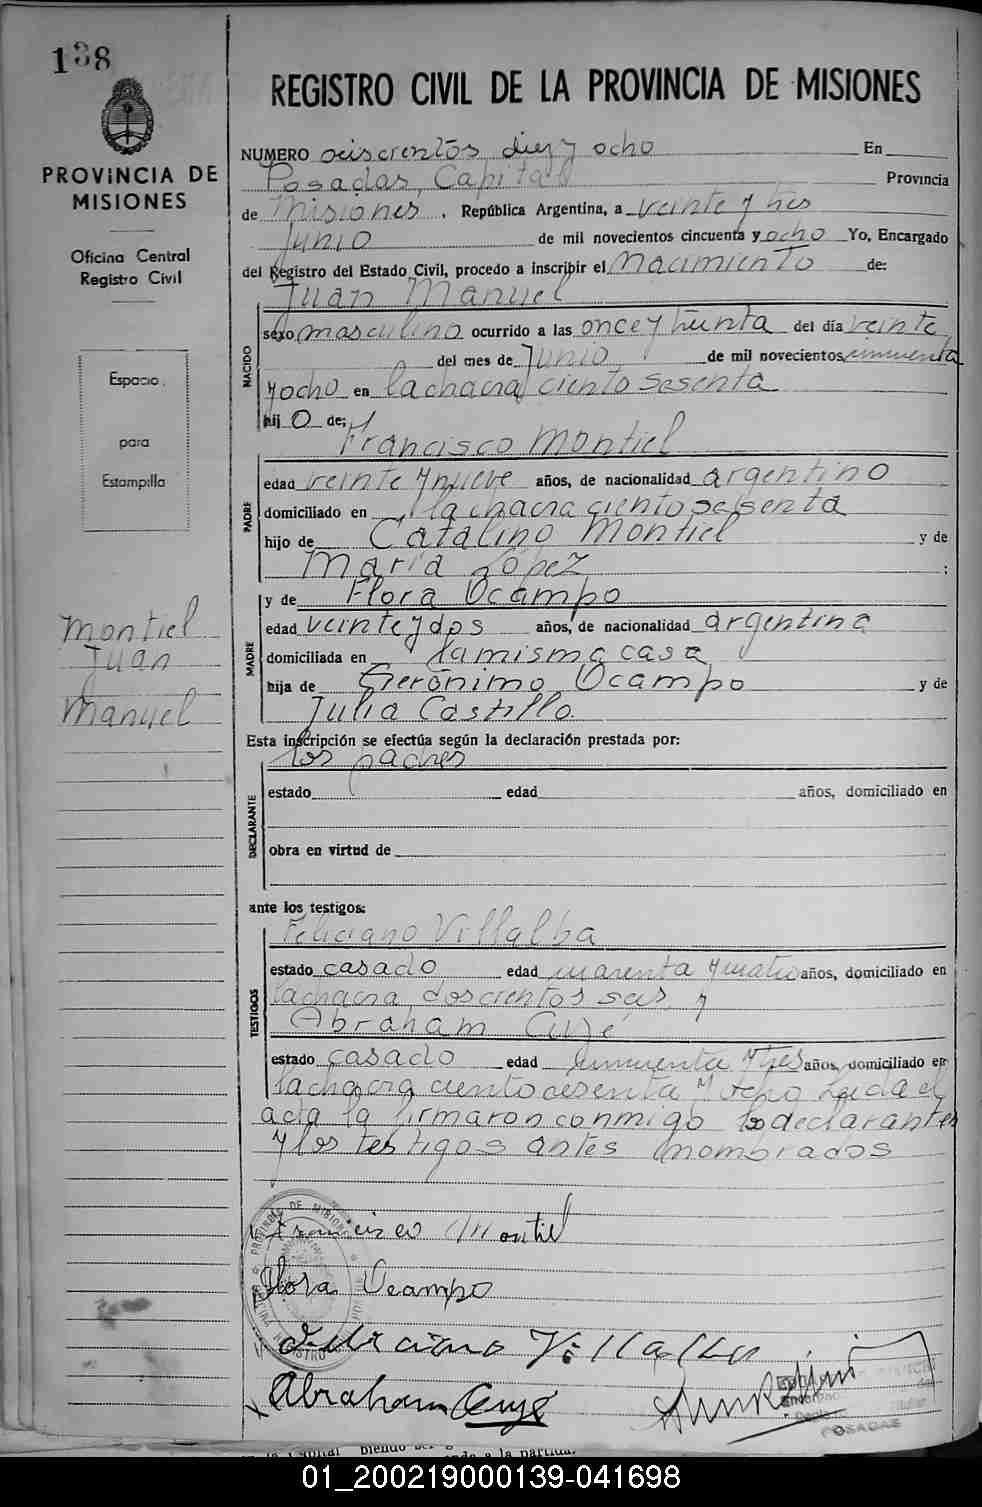 138
PROVINCIA DE
MISIONES
Oficina Central
Registro Civil
Espacio
para
Estampilla
Montiel
Juan
Manuel
REGISTRO CIVIL DE LA PROVINCIA DE MISIONES
NUMERO seiscientos diez y ocho En
Posadas, Capital Provincia
de Misiones, República Argentina, a veinte y tres
Junio de mil novecientos cincuenta y ocho Yo, Encargado
del Registro del Estado Civil, procedo a inscribir el Nacimiento de:
Juan Manuel
NACIDO
sexo masculino ocurrido a las once y treinta del día veinte
del mes de Junio de mil novecientos cincuenta
y ocho en la chacra ciento sesenta
hij o de:
Francisco Montiel
PADRE
edad veinte y nueve años, de nacionalidad argentino
domiciliado en la chacra ciento sesenta
hijo de Catalino Montiel y de
María López ;
y de Flora Ocampo
MADRE
edad veinte y dos años, de nacionalidad argentina
domiciliada en la misma casa
hija de Gerónimo Ocampo y de
Julia Castillo.
Esta inscripción se efectúa según la declaración prestada por:
los padres
DECLARANTE
estado edad años, domiciliado en
obra en virtud de
ante los testigos:
Feliciano Villalba
TESTIGOS
estado casado edad cuarenta y cuatro años, domiciliado en
la chacra doscientos seis y
Abraham
estado casado edad cincuenta y tres años, domiciliado en
la chacra ciento sesenta y ocho Leida el
acta la firmaron conmigo los declarantes
y los testigos antes nombrados
Francisco Montiel
Flora Ocampo
Feliciano Villalba
Abraham
POSADAS
01_200219000139-041698